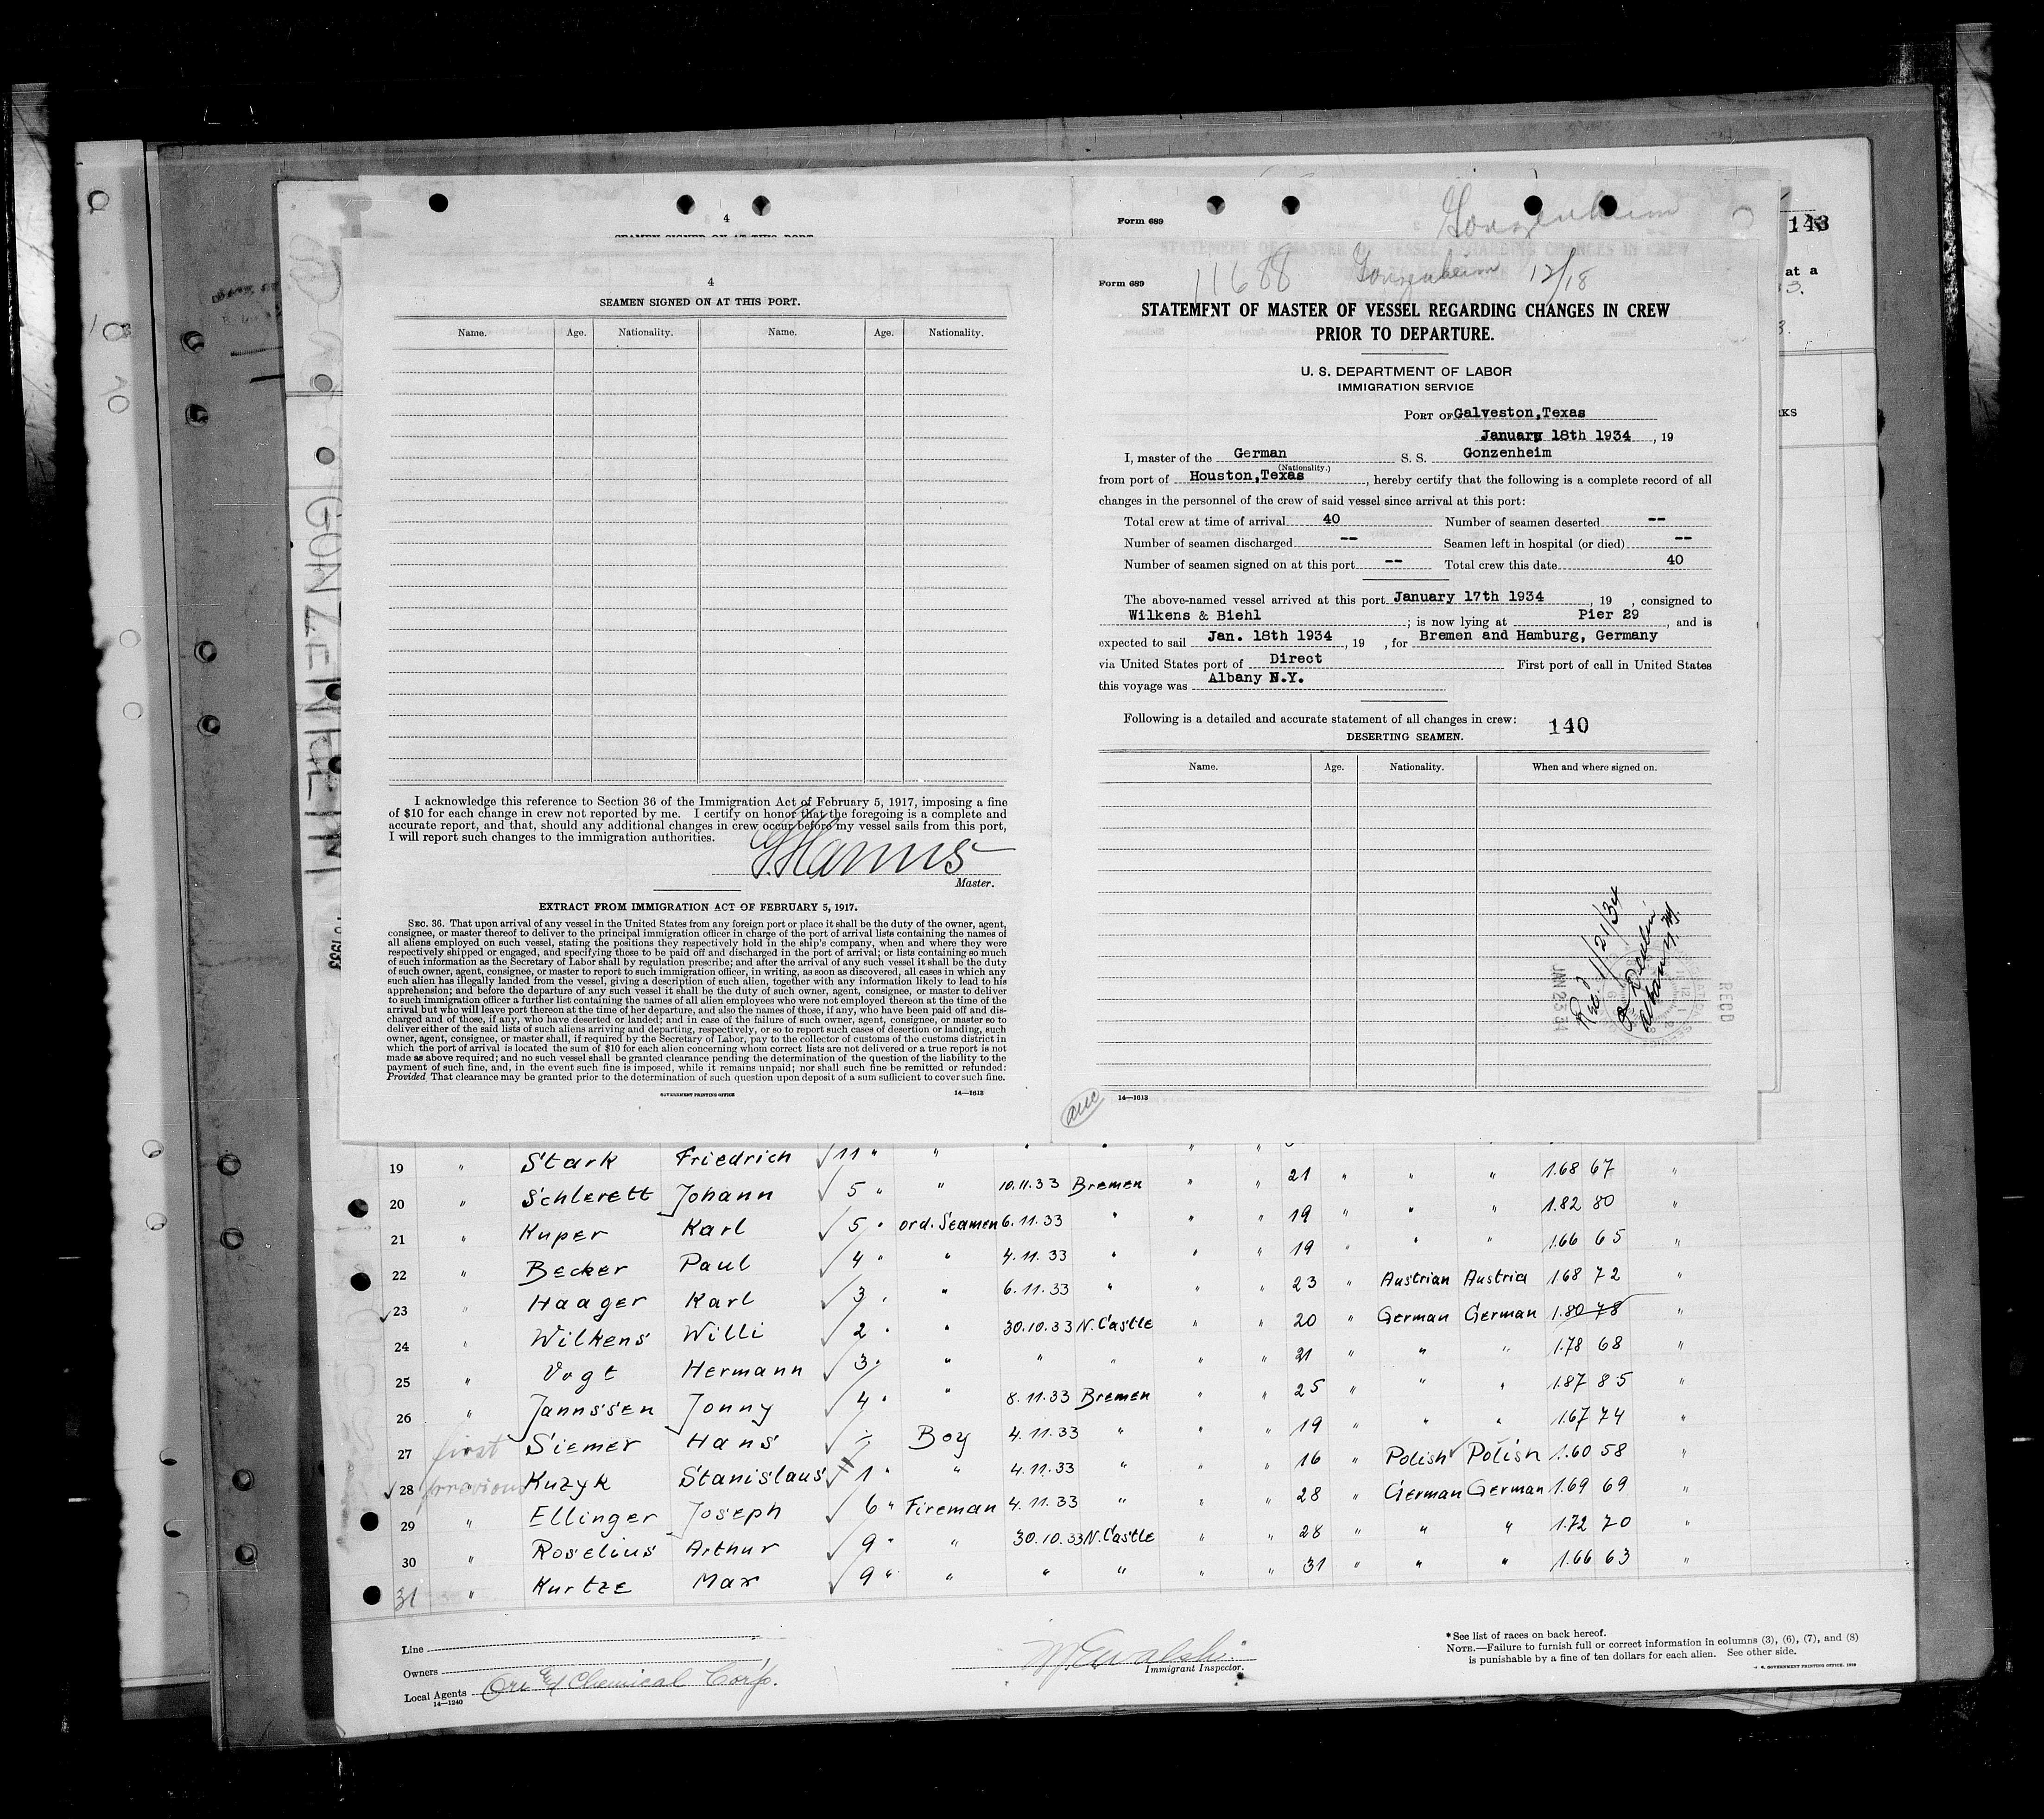 4
SEAMEN SIGNED ON AT THIS PORT.
4
SEAMEN SIGNED ON AT THIS PORT.
Name. Age. Nationality. Name. Age. Nationality.
I acknowledge this reference to Section 36 of the Immigration Act of February 5, 1917, imposing a fine
of $10 for each change in crew not reported by me. I certify on honor that the foregoing is a complete and
accurate report, and that, should any additional changes in crew occur before my vessel sails from this port,
I will report such changes to the immigration authorities.
Master.
EXTRACT FROM IMMIGRATION ACT OF FEBRUARY 5, 1917.
SEC. 36. That upon arrival of any vessel in the United States from any foreign port or place it shall be the duty of the owner, agent,
consignee, or master thereof to deliver to the principal immigration officer in charge of the port of arrival lists containing the names of
all aliens employed on such vessel, stating the positions they respectively hold in the ship's company, when and where they were
respectively shipped or engaged, and specifying those to be paid off and discharged in the port of arrival; or lists containing so much
of such information as the Secretary of Labor shall by regulation prescribe; and after the arrival of any such vessel it shall be the duty
of such owner, agent, consignee, or master to report to such immigration officer, in writing, as soon as discovered, all cases in which any
such alien has illegally landed from the vessel, giving a description of such alien, together with any information likely to lead to his
apprehension; and before the departure of any such vessel it shall be the duty of such owner, agent, consignee, or master to deliver
to such immigration officer a further list containing the names of all alien employees who were not employed thereon at the time of the
arrival but who will leave port thereon at the time of her departure, and also the names of those, if any, who have been paid off and dis-
charged and of those, if any, who have deserted or landed; and in case of the failure of such owner, agent, consignee, or master so to
deliver either of the said lists of such aliens arriving and departing, respectively, or so to report such cases of desertion or landing, such
owner, agent, consignee, or master shall, if required by the Secretary of Labor, pay to the collector of customs of the customs district in
which the port of arrival is located the sum of $10 for each alien concerning whom correct lists are not delivered or a true report is not
made as above required; and no such vessel shall be granted clearance pending the determination of the question of the liability to the
payment of such fine, and, in the event such fine is imposed, while it remains unpaid; nor shall such fine be remitted or refunded:
Provided That clearance may be granted prior to the determination of such question upon deposit of a sum sufficient to cover such fine.
GOVERNMENT PRINTING OFFICE 14—1613
Form 689
Gonzenheim
143
Form 689 11688 Gonzenheim 12/18
STATEMENT OF MASTER OF VESSEL REGARDING CHANGES IN CREW
PRIOR TO DEPARTURE.
U. S. DEPARTMENT OF LABOR
IMMIGRATION SERVICE
PORT OF Galveston,Texas
January 18th 1934, 19
I, master of the German S. S. Gonzenheim
(Nationality.)
from port of Houston,Texas, hereby certify that the following is a complete record of all
changes in the personnel of the crew of said vessel since arrival at this port:
Total crew at time of arrival 40 Number of seamen deserted --
Number of seamen discharged -- Seamen left in hospital (or died) --
Number of seamen signed on at this port -- Total crew this date 40
The above-named vessel arrived at this port January 17th 1934, 19 , consigned to
Wilkens & Biehl; is now lying at Pier 29, and is
expected to sail Jan. 18th 1934, 19 , for Bremen and Hamburg, Germany
via United States port of Direct First port of call in United States
this voyage was Albany N.Y.
Following is a detailed and accurate statement of all changes in crew: 140
DESERTING SEAMEN.
Name. Age. Nationality. When and where signed on.
Rec'd 1/21/34
Albany N.Y.
JAN 23 34
RECD
14—1613
GONZENHEIM
1933
19 " Stark Friedrich √ 11 " " " " " " 21 " " " 1.68 67 "
20 " Schlerett Johann √ 5 " " 10.11.33 Bremen " " 19 " " " 1.82 80
21 " Kuper Karl √ 5 " ord. Seamen 6.11.33 " " " 19 " " " 1.66 65 "
22 " Becker Paul √ 4 " " 4.11.33 " " " 23 " Austrian Austria 1.68 72 "
√ 23 " Haager Karl √ 3 " " 6.11.33 " " " 20 " German German 1.80 78 "
24 " Wilkens Willi √ 2 " " 30.10.33 N.Castle " " 21 " " " 1.78 68 "
25 " Vogt Hermann √ 3 " " " " " " 25 " " " 1.87 85 "
26 " Jannssen Jonny √ 4 " " 8.11.33 Bremen " " 19 " " " 1.67 74 "
27 first Siemer Hans √ ÷ Boy 4.11.33 " " " 16 " Polish √ Polish 1.60 58 "
√ 28 previous Kuzyk Stanislaus √ 1 " " 4.11.33 " " " 28 " German German 1.69 69 "
29 " Ellinger Joseph √ 6 " Fireman 4.11.33 " " " 28 " " " 1.72 70 "
30 " Roselius Arthur √ 9 " " 30.10.33 N.Castle " " 31 " " " 1.66 63 "
31 " Kurtze Max √ 9 " " " " " "
Line
Owners
Local Agents Ore & Chemical Corp.
14—1240
Immigrant Inspector.
*See list of races on back hereof.
NOTE.—Failure to furnish full or correct information in columns (3), (6), (7), and (8)
is punishable by a fine of ten dollars for each alien. See other side.
U. S. GOVERNMENT PRINTING OFFICE